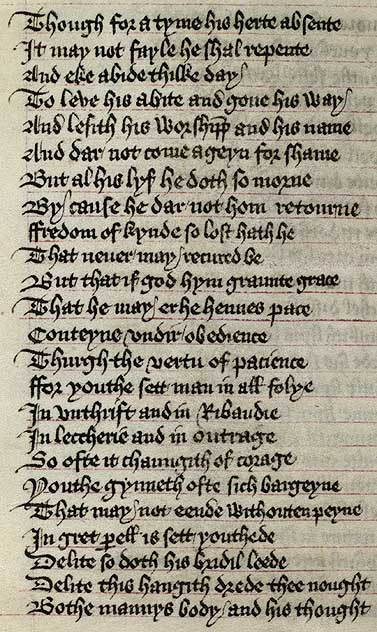 Though for a tyme his herte absente
It may not fayle he shal repente
And eke abide thilke day/
To leve his abite and gone his way/
And lesith his worshipp and his name
And dar not come ageyn for shame
But al his lyf he doth so morne
By/cause he dar not hom retourne
ffredom of kynde so lost hath he
That never may/ recured be
But that if god hym graunte grace
That he may/ er he hennes pace
Conteyne undir obedience
Thurgh the vertu of pacience
ffor youthe sett man in all folye
In unthrift and in Ribaudie
In leccherie and in outrage
So ofte it chaungith of corage
Youthe gynneth ofte sich bargeyne
That may/ not eende withouten peyne
In gret pell is sett youthede
Delite so doth his bridil leede
Delite this hangith drede thee nought
Bothe mannys body/ and his thought